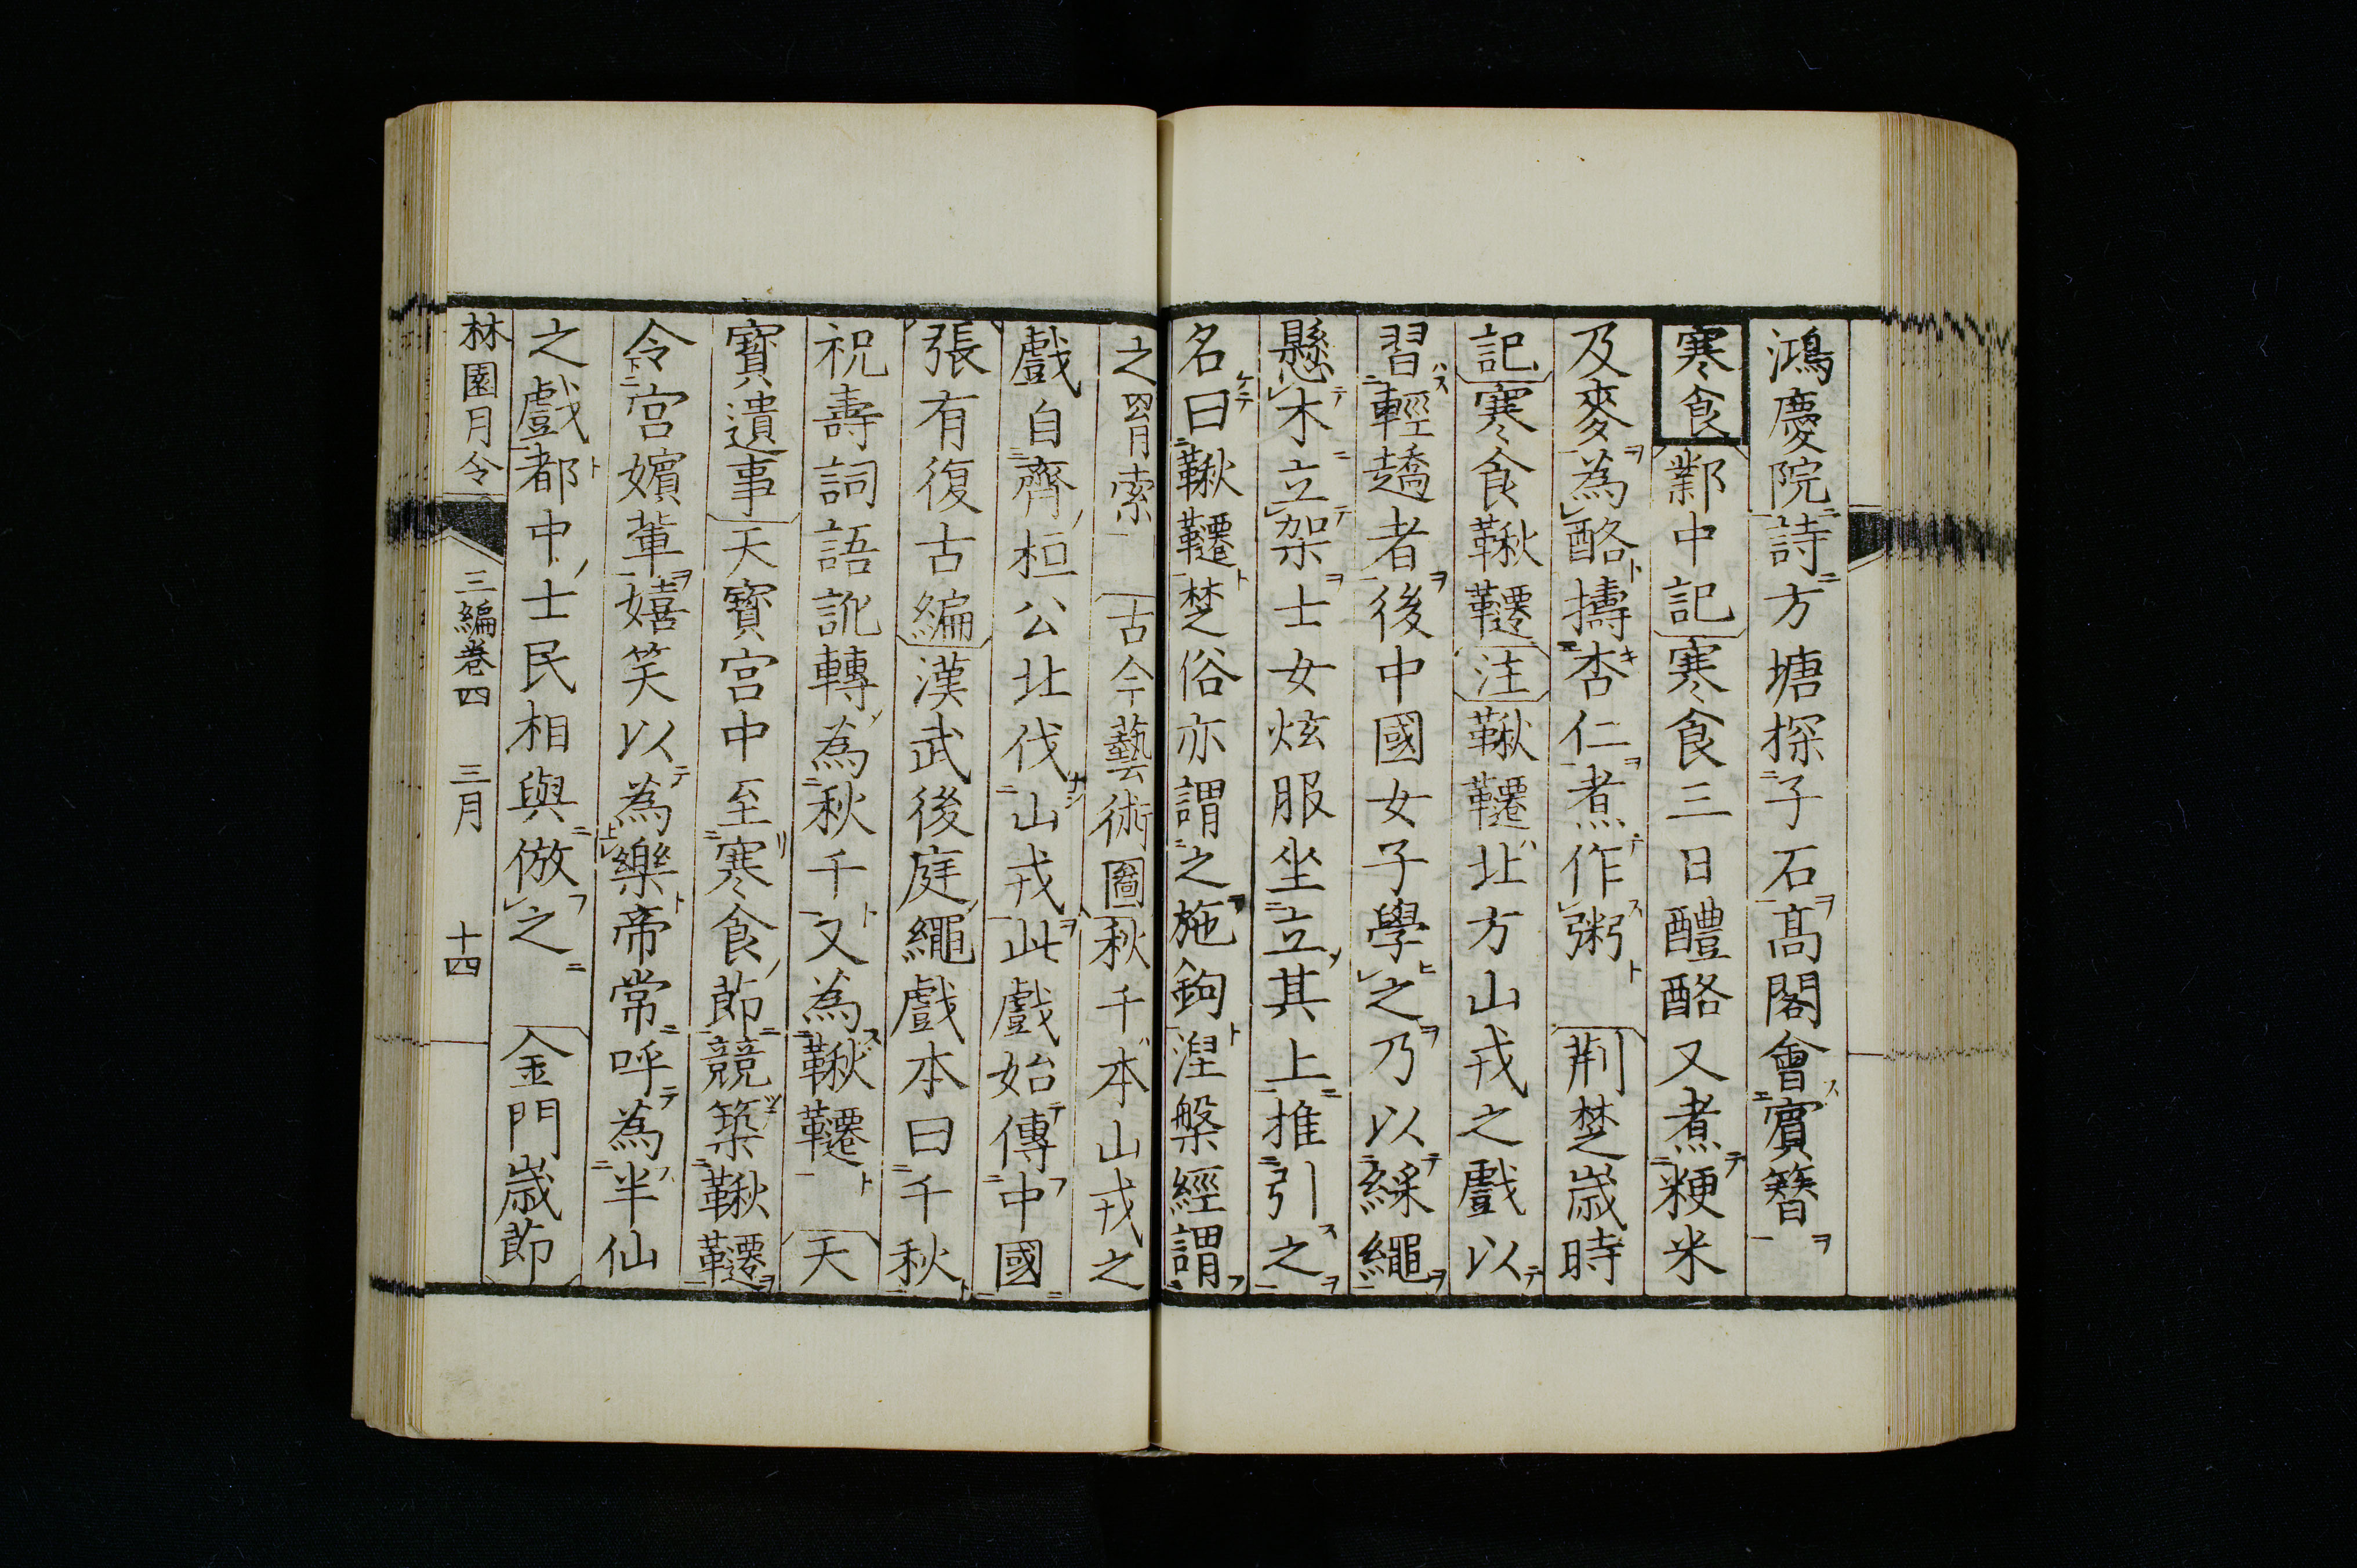 鴻慶院詩方塘探子石髙閣會賓簪
寒食鄴中記寒食三日醴酪又煮粳米
及麥為酪擣杏仁煮作粥荆楚歳時
記寒食鞦韆注鞦韆北方山戎之戲以
習輕趫者後中國女子學之乃以綵繩
懸木立架士女炫服坐立其上推引之
名曰鞦韆楚俗亦謂之施鉤涅槃經謂
之罥索古今藝術圖秋千本山戎之
戲自齊桓公北伐山戎此戲始傳中國
張有復古編漢武後庭繩戲本曰千秋
祝壽詞語訛轉為秋千又為鞦韆天
寶遺事天寶宮中至寒食節競築鞦韆
令宮嬪輩嬉笑以為樂帝常呼為半仙
之戲都中士民相與倣之金門歳節
林園月令 三編卷四 三月 十四